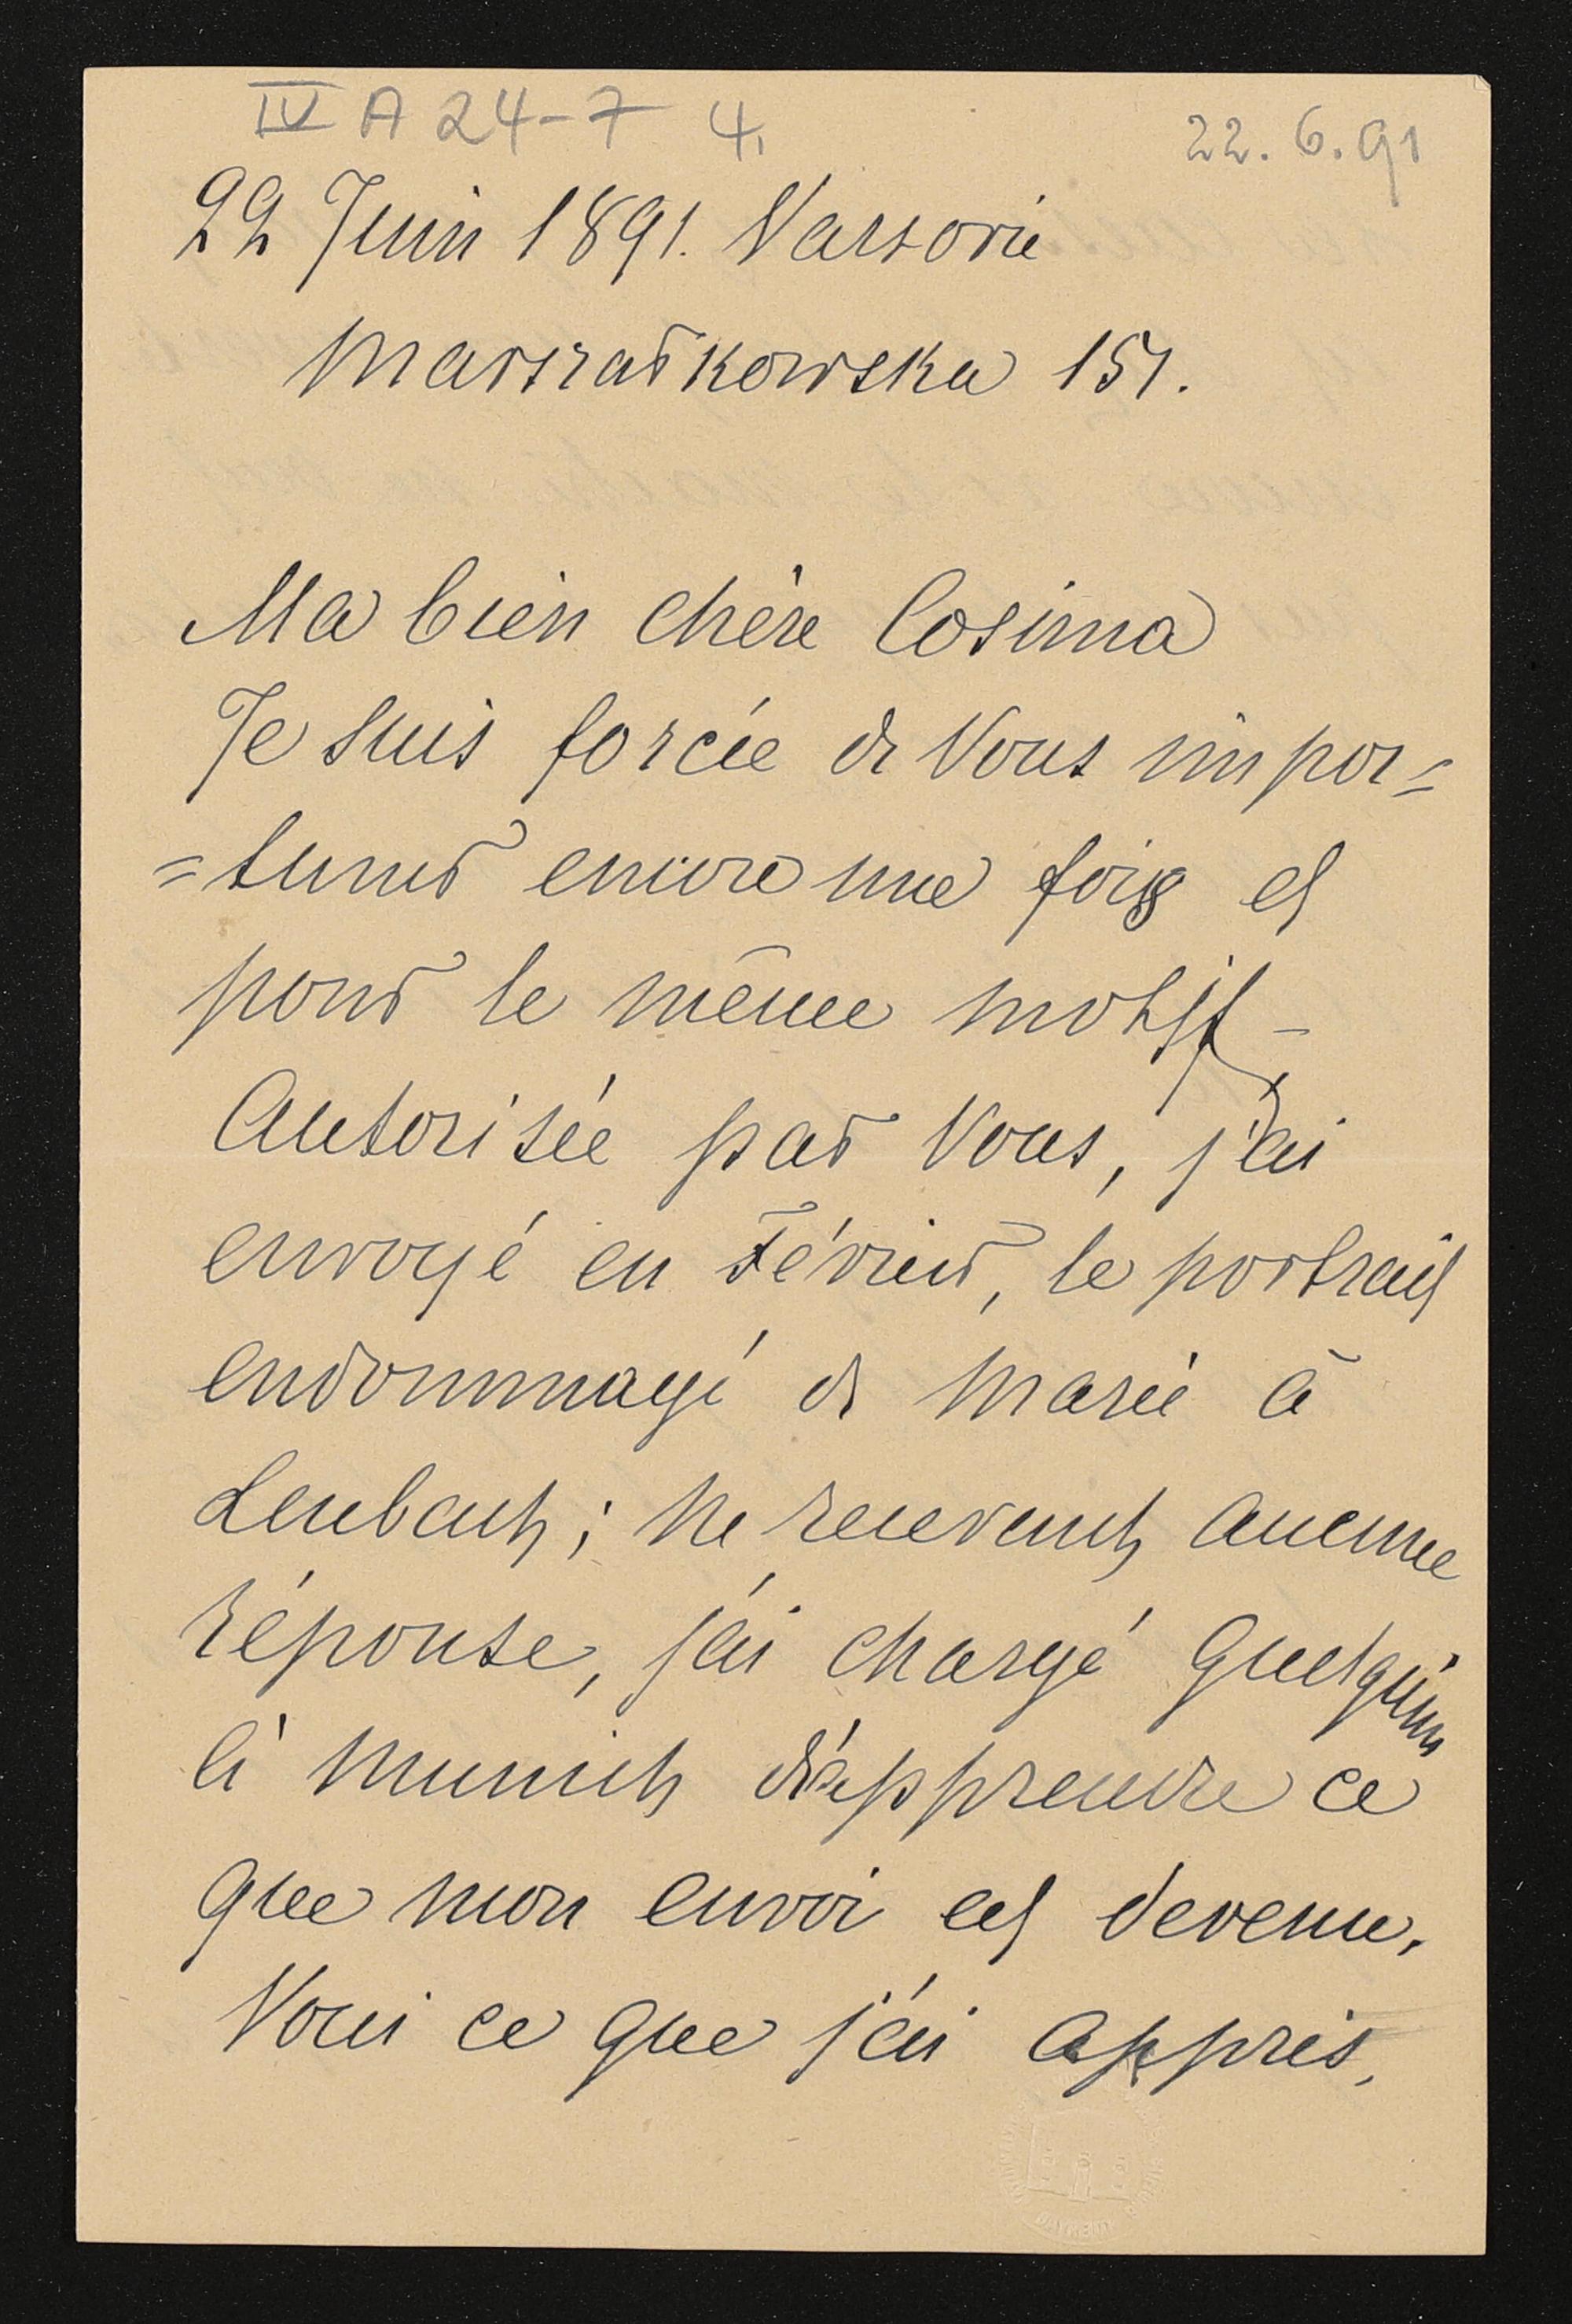 IV A 24-7 4.
22. 6. 91
22 Juin 1891. Varsovie
Marszałkowska 151.
Ma bien chère Cosima
Je suis forcée de Vous impor=
=tuner encore une fois et
pour le même motif –
Autorisée par Vous, j'ai
envoyé en Février, le portrait
endommagé de Marie à
Lenbach; ne recevant aucune
réponse, j'ai chargé quelqu'un
à Munich d'apprendre ce
que mon envoi est devenu.
Voici ce que j'ai appris,